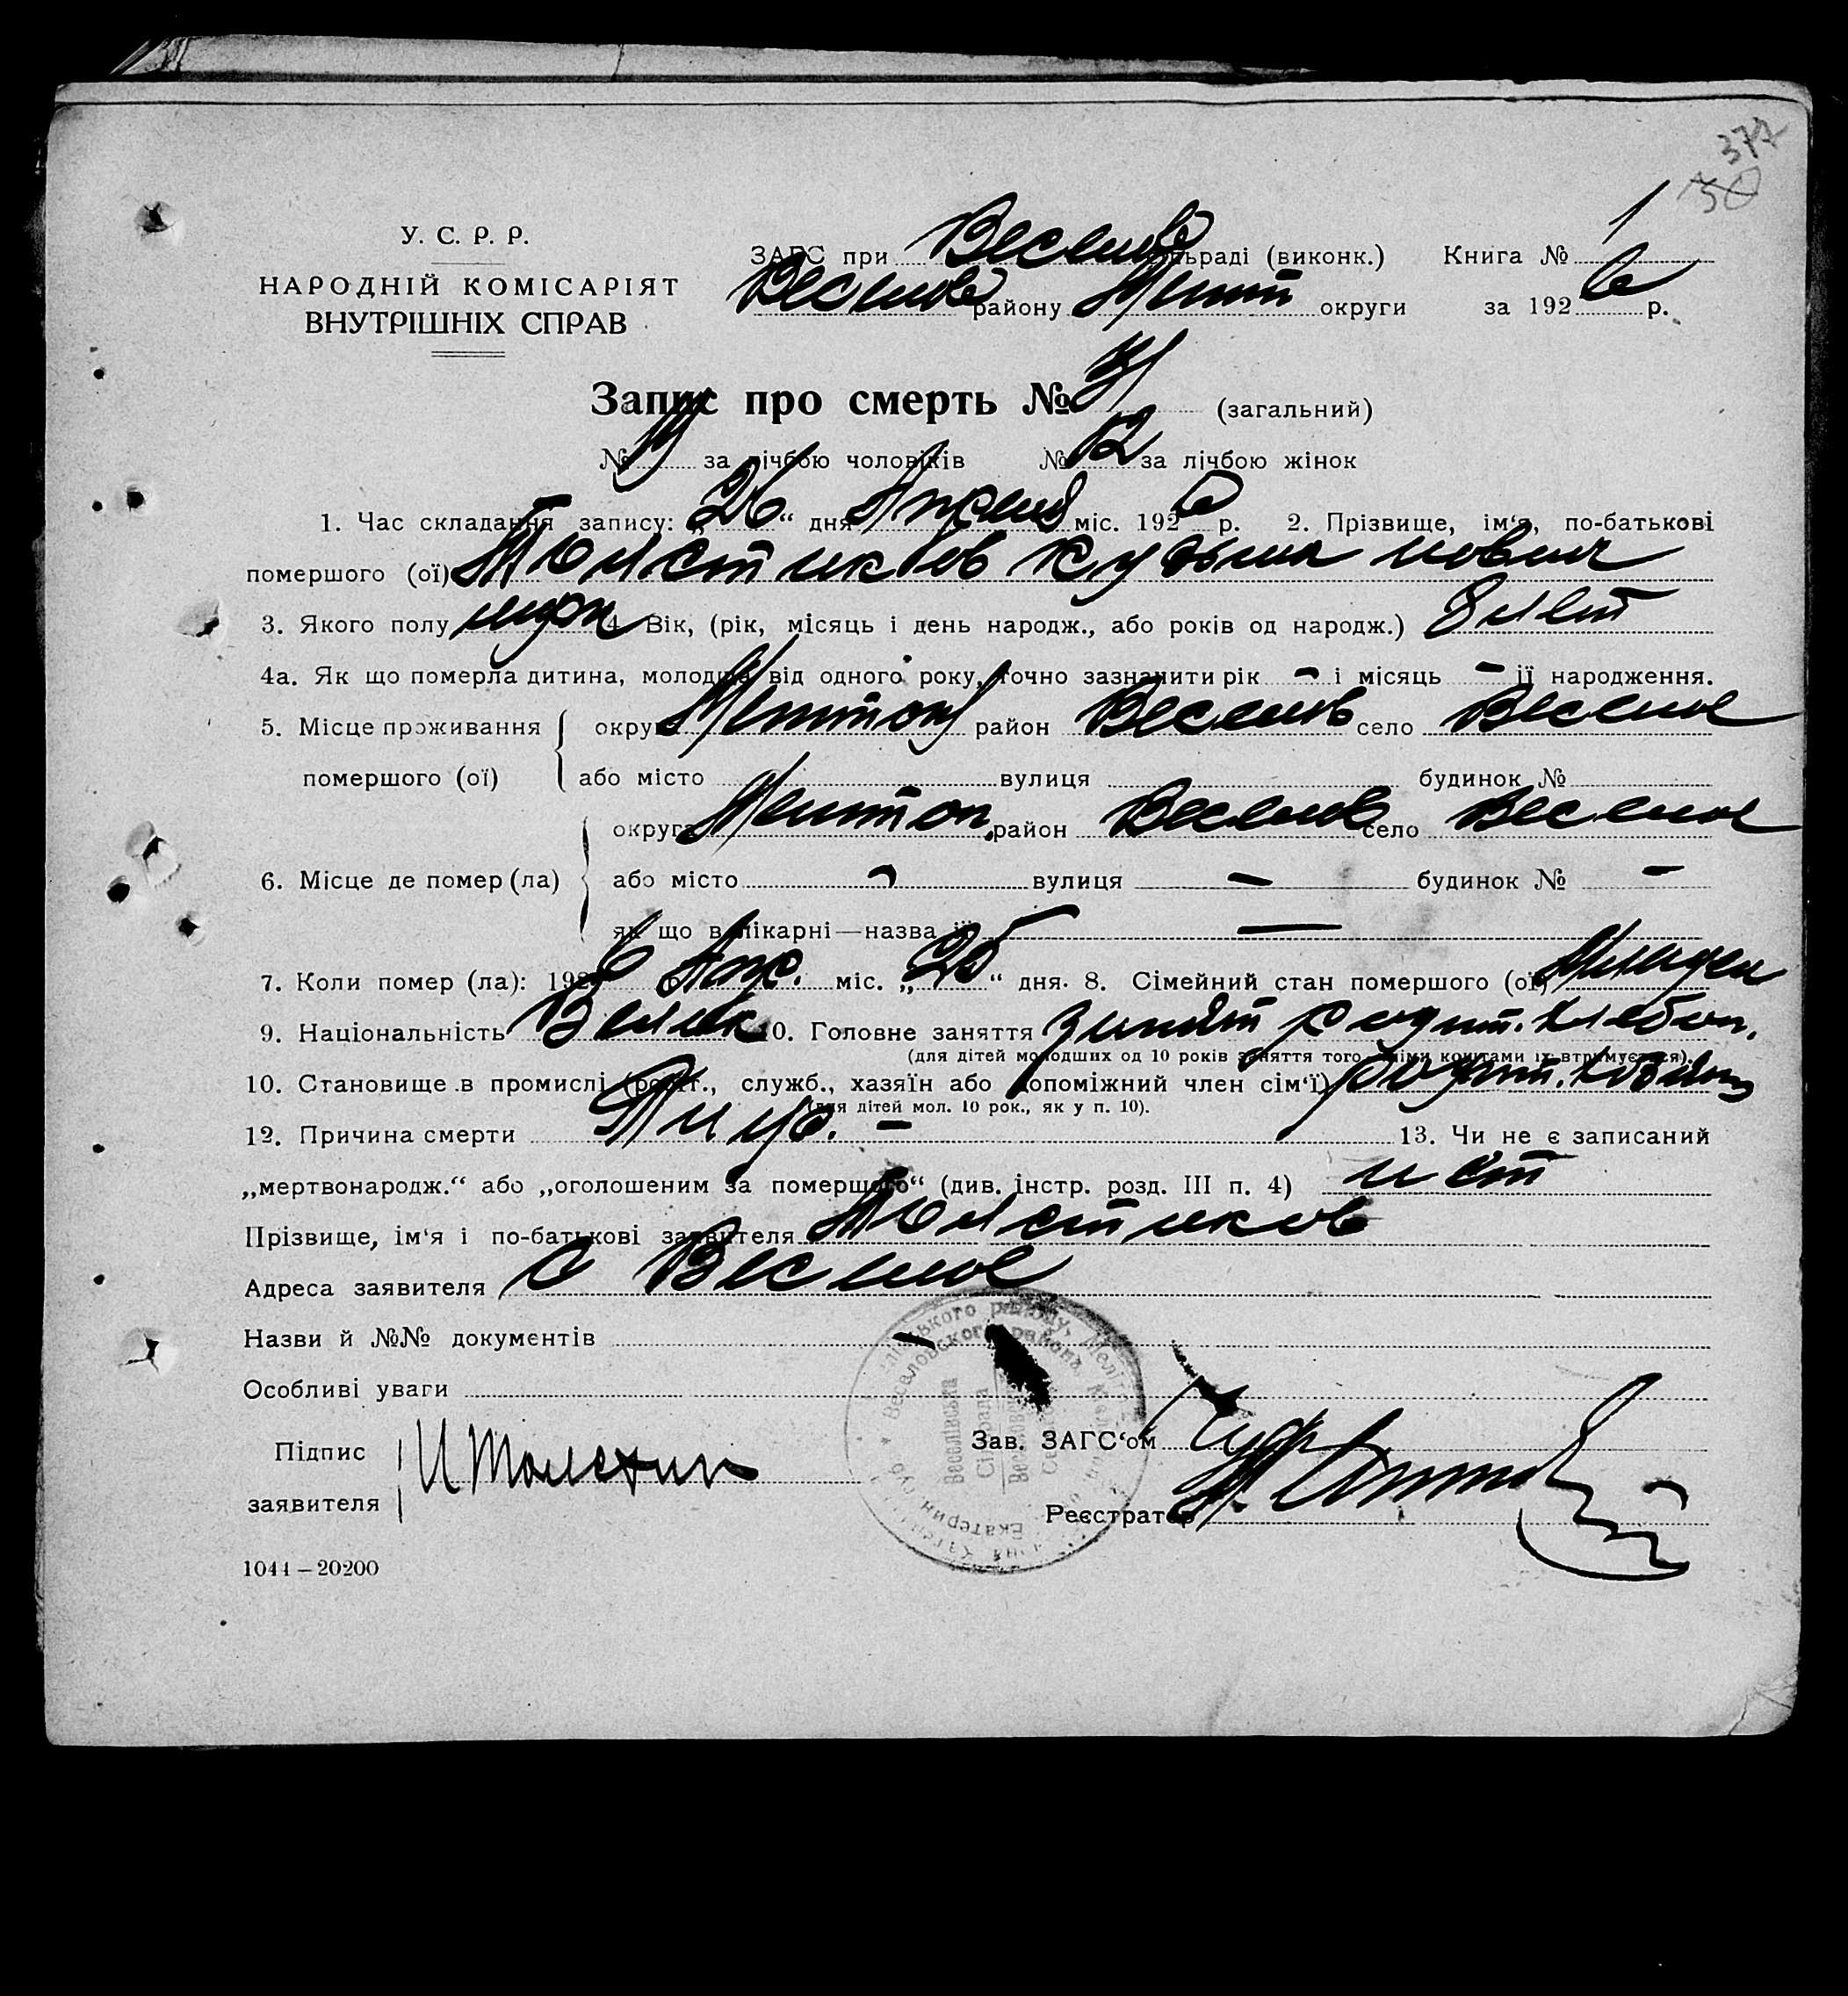 377
50
У. С. Р. Р.
НАРОДНІЙ КОМІСАРІЯТ
ВНУТРІШНІХ СПРАВ
ЗАГС при Веселов сільраді (виконк.) Книга № 1
Веселов району Мелит округи за 1926 р.
Запис про смерть № 31 (загальний)
№ 19 за лічбою чоловіків № 12 за лічбою жінок
1. Час складання запису: „26“ дня Апреля міс. 1926 р. 2. Прізвище, ім‘я, по-батькові
помершого (ої) Толстиков Кузьма
3. Якого полу муж 4. Вік, (рік, місяць і день народж., або років од народж.) 8 лет
4а. Як що померла дитина, молодша від одного року, точно зазначити рік – і місяць – її народження.
5. Місце проживання округа Мелитоп район Веселов село Веселое
помершого (ої) або місто вулиця будинок №
округа Мелитоп. район Веселов село Веселое
6. Місце де помер (ла) або місто – вулиця – будинок № –
як що в лікарні—назва її —
7. Коли помер (ла): 1926 р. Апр. міс. „25“ дня. 8. Сімейний стан помершого (ої)
9. Національність 10. Головне заняття родит. хлебоп.
(для дітей молодших од 10 років заняття того, чіїми коштами їх втримується).
10. Становище в промислі (робіт., служб., хазяїн або допоміжний член сім‘ї) родит.
(для дітей мол. 10 рок., як у п. 10).
12. Причина смерти – 13. Чи не є записаний
„мертвонародж.“ або „оголошеним за помершого“ (див. інстр. розд. III п. 4) нет
Прізвище, ім‘я і по-батькові заявителя Толстиков
Адреса заявителя с Веселое
Назви й №№ документів –
Особливі уваги
Підпис
заявителя
И Толстик
Зав. ЗАГС‘ом
Реєстратор
Веселівська
Сільрада
1044 – 20200